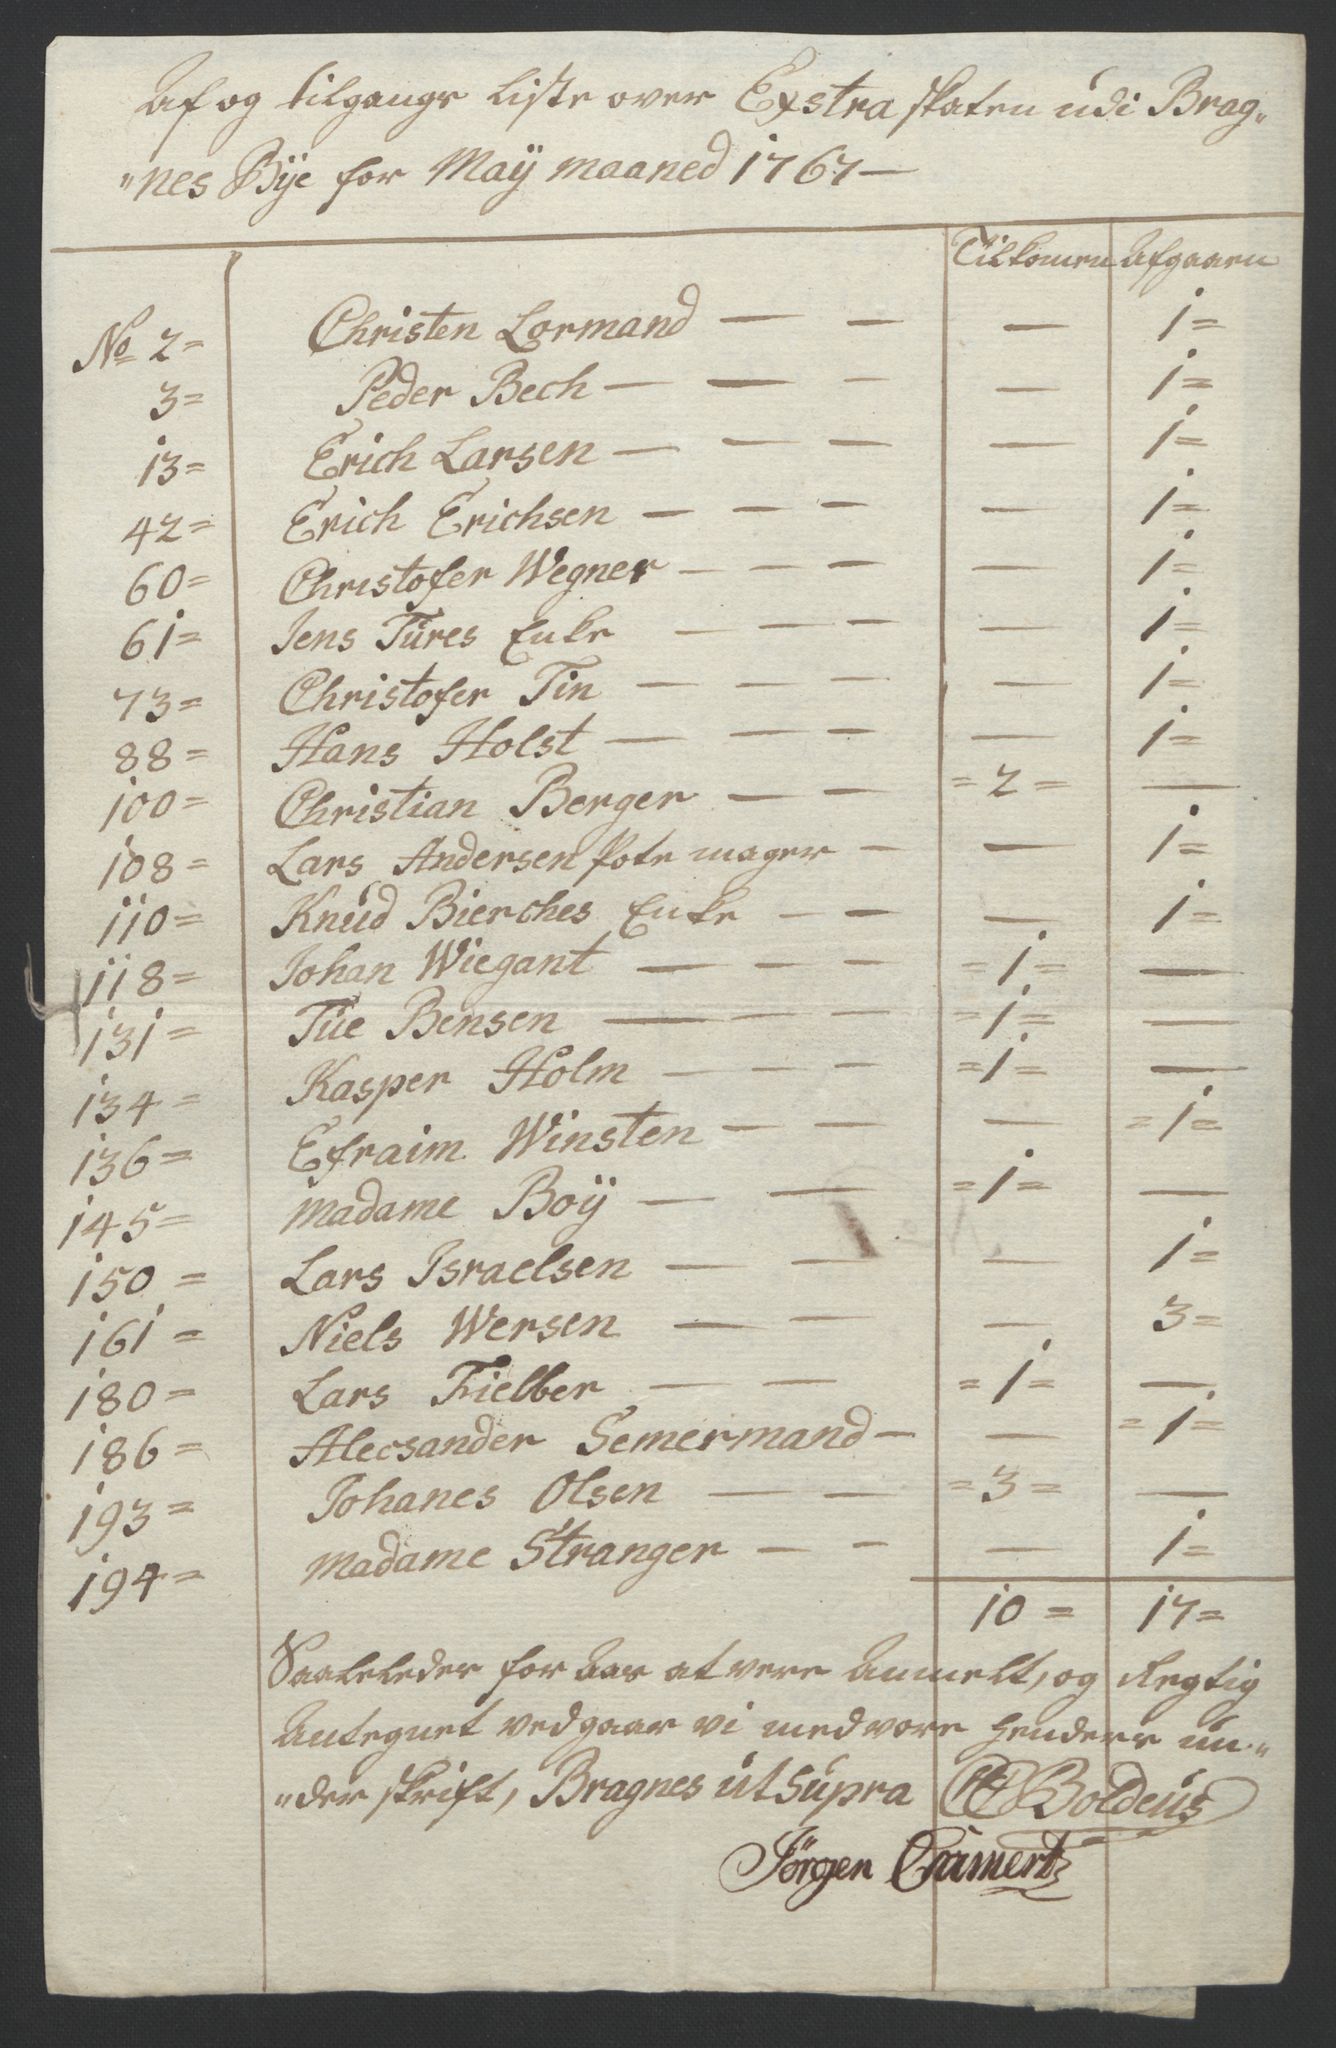 Af og tilgangs liste over Exstra skaten udi Brag„
„nes Bÿe for Maÿ maaned 1767 —
Tilkomen Afgaaen
No 2 = Christen Lormand — — — 1 =
3 = Peder Bech — — — — 1 =
13 = Erich Larsen — — — — 1 =
42 = Erich Erichsen — — — — 1 =
60 = Christofer Wegner — — — — 1 =
61 = Jens Türes Enke — — — — 1 =
73 = Christofer Tin — — — — 1 =
88 = Hans Holst — — — — 1 =
100 = Christian Berger — — = 2 = —
108 = Lars Andersen Pote mager — — 1 =
110 = Knüd Bierches Enke — — — 1 =
118 = Johan Wiegant — — — = 1 = —
131 = Tüe Bensen — — — = 1 = —
134 = Kasper Holm — — — = 1 = —
136 = Efraim Winsten — — — = 1 =
145 = Madame Boÿ — — = 1 = —
150 = Lars Israelsen — — — 1 =
161 = Niels Wersen — — — 3 =
180 = Lars Fielber — — = 1 = —
186 = Alecsander Semermand — — = 1 =
193 = Johanes Olsen — — = 3 = —
194 = Madame Stranger — — — 1 =
10 = 17 =
Saaleledes for Aar at vere Anmelt, og Regtig
Antegnet vedgaar vi med vore henders un„
„der skrift, Bragnes ut supra Boldeüs
Jörgen Cramertz